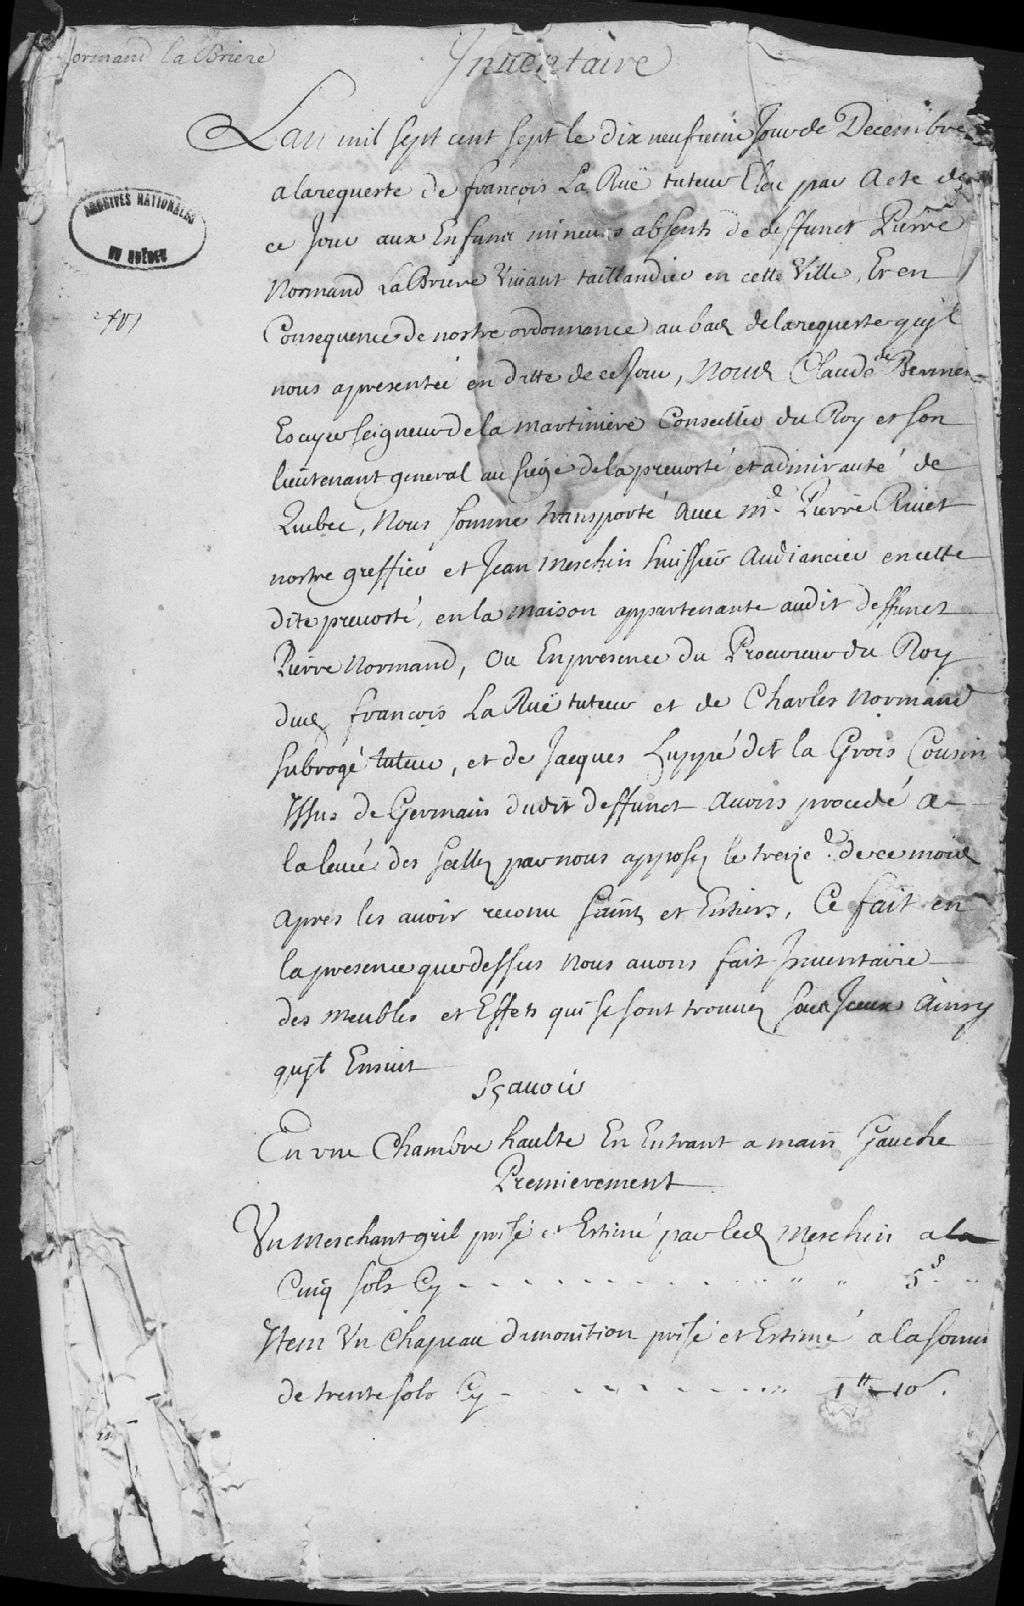 Normand la Briere
Inuentaire
Lan mil sept cent sept le dix neufieme Jour de Decembre
a la requeste de françois La Ruë tuteur Eleu par Acte de
ce Jour aux Enfans mineurs absents de deffunct Pierre
Normand LaBriere Viuant taillandier en cette Ville, Et en
Consequence de nostre ordonnance au bas de la requeste qu'jl
nous a presentée en datte de ce Jour, Nous Claude de Bermen
Escuyer seigneur de la martiniere Conseiller du Roy et son
lieutenant general au siege de la preuosté et admirauté de
Quebec, Nous somme transporté Auec Me. Pierre Riuet
nostre greffier et Jean Meschin huissier Audiancier en cette
dite preuosté, en la maison appartenante audit deffunct
Pierre Normand, Ou En presence du Procureur du Roy
dud françois La Ruë tuteur et de Charles Normand
subrogé tuteur, et de Jacques Luppé dit la Grois Cousin
Jssus de Germain dudit deffunct Auons procedé a
la leuée des scellez par nous apposez le treize e. de ce mois
Apres les auoir reconu sains et Entiers, Ce fait en
la presence que dessus Nous auons fait Jnuentaire
des Meubles et Effets qui se sont trouuez sous Jceux Ainsy
qujl Ensuit
Sçauoir
En vne Chambre haulte En Entrant a main Gauche
Premierement
Vn Meschant gril prisé et Estimé par led Meschin a la
Cinq sols Cy 5s
Jtem Vn Chapeau d'munition prisé et Estimé a la somme
de trente sols Cy 1tt 10s.
ARCHIVES NATIONALES
DU QUÉBEC